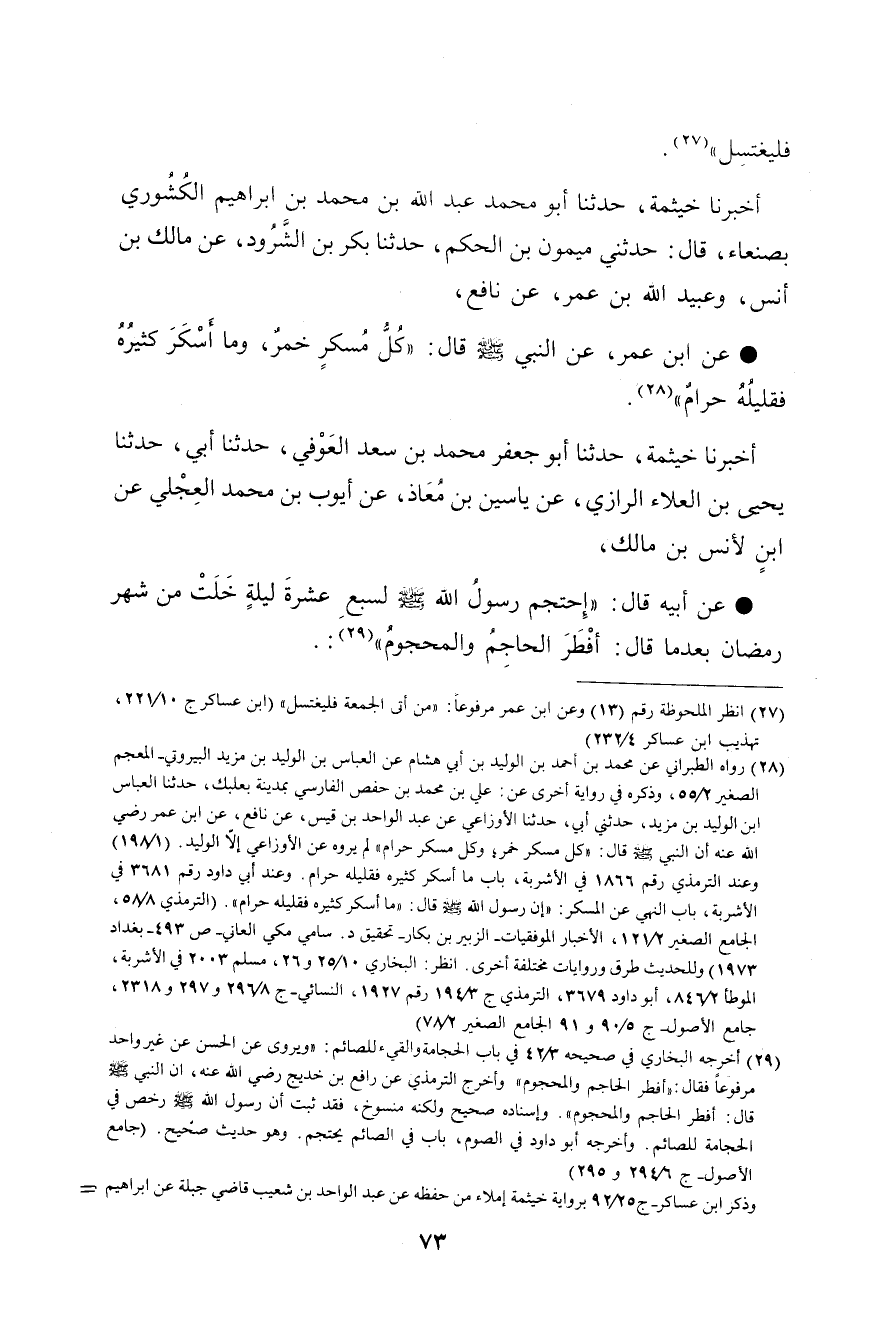 فليغتسِل»(٢٧).
أخبرنا خيثمة، حدثنا أبو محمد عبد الله بن محمد بن ابراهيم الكُشُوري
بصنعاء، قال: حدثني ميمون بن الحكم، حدثنا بكر بن الشَّرُود، عن مالك بن
أنس، وعبيد الله بن عمر، عن نافع،
● عن ابن عمر، عن النبي ﷺ قال: «كُلُّ مُسكرٍ خمرٌ، وما أَسْكَرَ كثيرُهُ
فقليلُهُ حرامٌ»(٢٨).
أخبرنا خيثمة، حدثنا أبو جعفر محمد بن سعد العَوْفي، حدثنا أبي، حدثنا
يحيى بن العلاء الرازي، عن ياسين بن مُعَاذ، عن أيوب بن محمد العِجْلي عن
ابنٍ لأنس بن مالك،
● عن أبيه قال: «إِحتجم رسولُ الله ﷺ لسبعِ عشرةَ ليلةٍ خَلَتْ من شهر
رمضان بعدما قال: أفْطَرَ الحاجِمُ والمحجومُ»(٢٩):.
(٢٧) انظر الملحوظة رقم (١٣) وعن ابن عمر مرفوعاً: «من أتى الجمعة فليغتسل» (ابن عساكر ج ٢٢١/١٠،
تهذيب ابن عساكر ٢٣٢/٤)
(٢٨) رواه الطبراني عن محمد بن أحمد بن الوليد بن أبي هشام عن العباس بن الوليد بن مزيد البيروتي ـ المعجم
الصغير ٥٥/٢، وذكره في رواية أخرى عن: علي بن محمد بن حفص الفارسي بمدينة بعلبك، حدثنا العباس
ابن الوليد بن مزيد، حدثني أبي، حدثنا الأوزاعي عن عبد الواحد بن قيس، عن نافع، عن ابن عمر رضي
الله عنه أن النبي ﷺ قال: «كل مسكر خمر؛ وكل مسكر حرام» لم يروه عن الأوزاعي إلاّ الوليد. (١٩٨/١)
وعند الترمذي رقم ١٨٦٦ في الأشربة، باب ما أسكر كثيره فقليله حرام. وعند أبي داود رقم ٣٦٨١ في
الأشربة، باب النهي عن المسكر: «إن رسول الله ﷺ قال: «ما أسكر كثيره فقليله حرام». (الترمذي ٥٨/٨،
الجامع الصغير ١٢١/٢، الأخبار الموفقيات ـ الزبير بن بكار ـ تحقيق د. سامي مكي العاني ـ ص ٤٩٣ ـ بغداد
١٩٧٣) وللحديث طرق وروايات مختلفة أخرى. انظر: البخاري ٢٥/١٠ و ٢٦، مسلم ٢٠٠٣ في الأشربة،
الموطأ ٨٤٦/٢، أبو داود ٣٦٧٩، الترمذي ج ١٩٤/٣ رقم ١٩٢٧، النسائي ـ ج ٢٩٦/٨ و ٢٩٧ و ٢٣١٨،
جامع الأصول ـ ج ٩٠/٥ و ٩١ الجامع الصغير ٧٨/٢)
(٢٩) أخرجه البخاري في صحيحه ٤٢/٣ في باب الحجامة والقيء للصائم: «ويروى عن الحسن عن غير واحد
مرفوعاً فقال: «أفطر الحاجم والمحجوم» وأخرج الترمذي عن رافع بن خديج رضي الله عنه، ان النبي ﷺ
قال: أفطر الحاجم والمحجوم». وإسناده صحيح ولكنه منسوخ، فقد ثبت أن رسول الله ﷺ رخص في
الحجامة للصائم. وأخرجه أبو داود في الصوم، باب في الصائم يحتجم. وهو حديث صحيح. (جامع
الأصول ـ ج ٢٩٤/٦ و ٢٩٥)
وذكر ابن عساكر ـ ج ٩٢/٢٥ برواية خيثمة إملاء من حفظه عن عبد الواحد بن شعيب قاضي جبلة عن ابراهيم =
٧٣